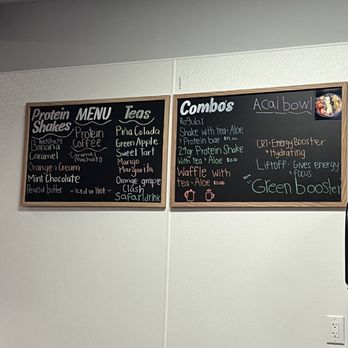 Protein
Shakes
Banana
Caramel
Orange & Cream
Mint Chocolate
Peanut butter
MENU
Protein
Coffee
Caramel
Macchiato
Iced or Hot
Teas
Piña Colada
Green Apple
Sweet Tart
Mango
Margarita
Orange grape
Clash
Safari drink
Combo's
Regular
Shake with tea + Aloe
+ Protein bar
24gr Protein Shake
with Tea + Aloe
Waffle with
tea + Aloe
Acai bowl
CR7-Energy Booster
+ Hydrating
Liftoff - Gives energy
+ focus
Green booster